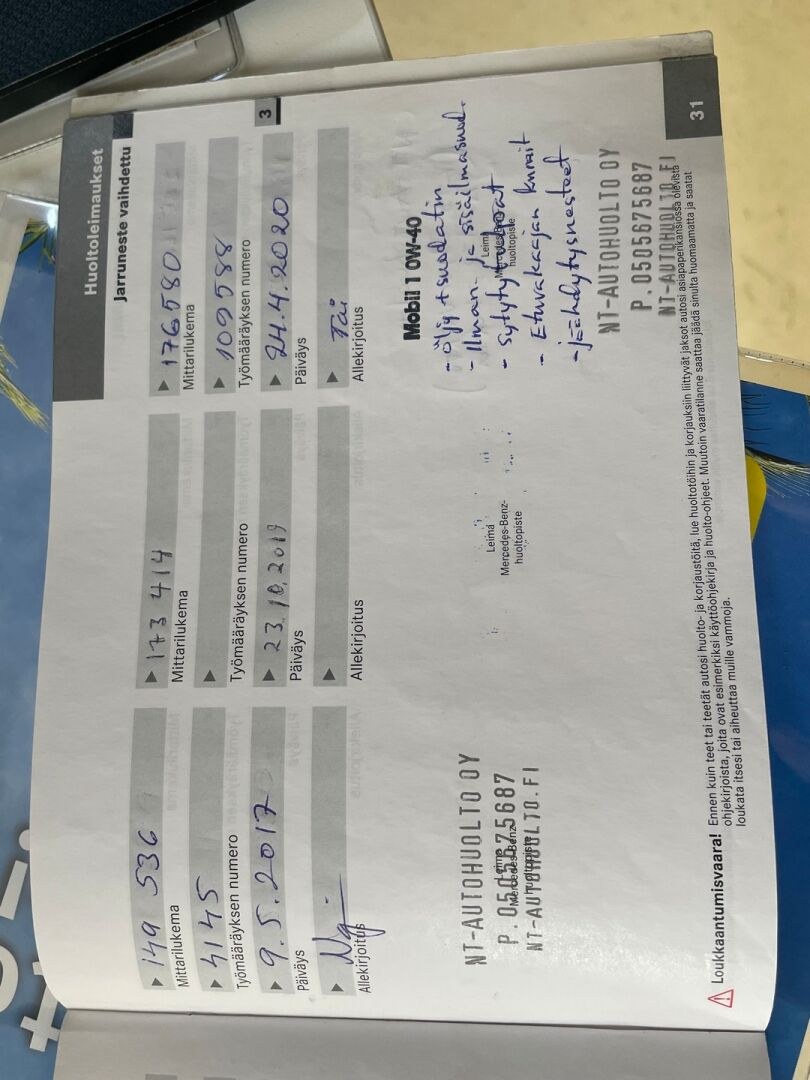 Huoltoleimaukset
Jarruneste vaihdettu
149 536
Mittarilukema
4145
Työmääräyksen numero
9.5.2017
Päiväys
Allekirjoitus
NT-AUTOHUOLTO OY
P.0505675687
NT-AUTOHUOLTO.FI
Leima
Mercedes-Benz-
huoltopiste
173 414
Mittarilukema
Työmääräyksen numero
23.10.2019
Päiväys
Allekirjoitus
Leima
Mercedes-Benz-
huoltopiste
176580
Mittarilukema
109588
Työmääräyksen numero
24.4.2020
Päiväys
Allekirjoitus
3
Mobil 1 0W-40
- öljy + suodatin
- Ilman- ja sisäilmasuod.
- Sytytys
- Etuvakaajan kumit
- jäähdytysnesteet
Leima
Mercedes-Benz-
huoltopiste
NT-AUTOHUOLTO OY
P.0505675687
NT-AUTOHUOLTO.FI
Loukkaantumisvaara! Ennen kuin teet tai teetät autosi huolto- ja korjaustöitä, lue huoltotöihin ja korjauksiin liittyvät jaksot autosi asiapaperikansiossa olevista
ohjekirjoista, joita ovat esimerkiksi käyttöohjekirja ja huolto-ohjeet. Muutoin vaaratilanne saattaa jäädä sinulta huomaamatta ja saatat
loukata itsesi tai aiheuttaa muille vammoja.
31